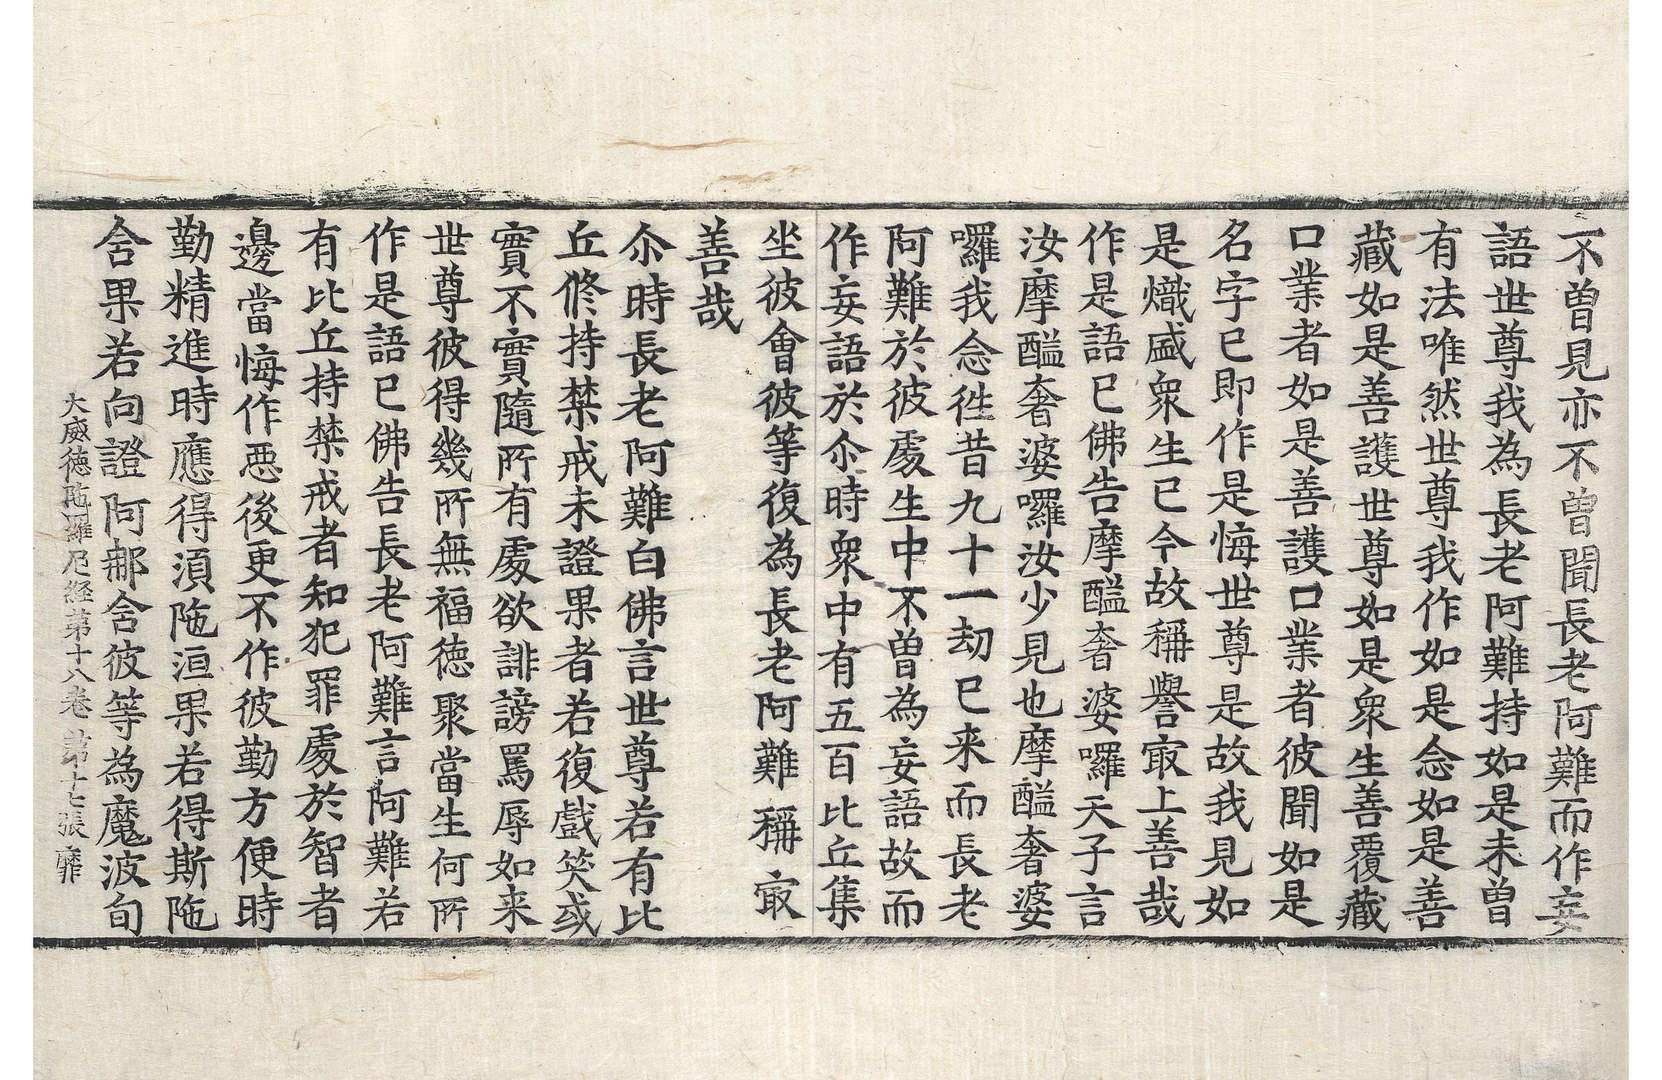 不曾見亦不曾聞長老阿難而作妄
語世尊我為長老阿難持如是未曾
有法唯然世尊我作如是念如是善
藏如是善護世尊如是衆生善覆藏
口業者如是善護口業者彼聞如是
名字已即作是悔世尊是故我見如
是熾盛衆生已今故稱譽㝡上善哉
作是語已佛告摩醯奢婆囉天子言
汝摩醯奢婆囉汝少見也摩醯奢婆
囉我念徃昔九十一劫已来而長老
阿難於彼處生中不曾為妄語故而
作妄語於尒時衆中有五百比丘集
坐彼會彼等復為長老阿難稱㝡
善哉
尒時長老阿難白佛言世尊若有比
丘修持禁戒未證果者若復戲笑或
實不實隨所有處欲誹謗罵辱如来
世尊彼得幾所無福徳聚當生何所
作是語已佛告長老阿難言阿難若
有比丘持禁戒者知犯罪處於智者
邊當悔作惡後更不作彼勤方便時
勤精進時應得湏陁洹果若得斯陁
含果若向證阿那含彼等為魔波旬
大威徳陁羅尼経第十八卷 第十七張 靡